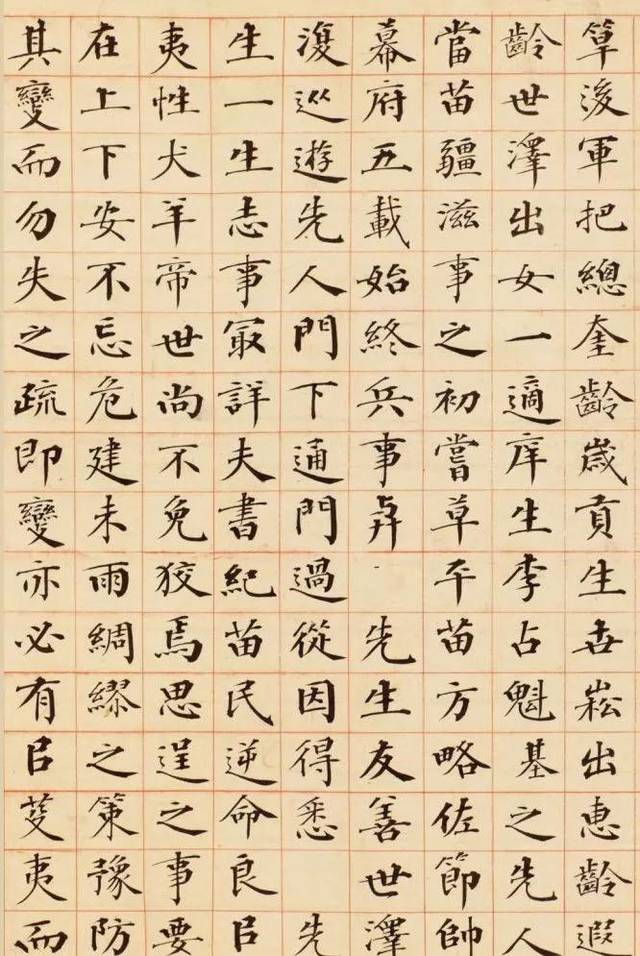 草後軍把總奎齡歲貢生世崧出惠齡遐
齡世澤出女一適庠生李占魁基之先人
當苗疆滋事之初嘗草平苗方略佐節帥
幕府五載始終兵事與　先生友善世澤
復從遊先人門下通門過從因得悉　先
生一生志事冣詳夫書紀苗民逆命良㠯
夷性犬羊帝世尚不免狡焉思逞之事要
在上下安不忘危建未雨綢繆之策豫防
其變而勿失之疏即變亦必有㠯芟夷而